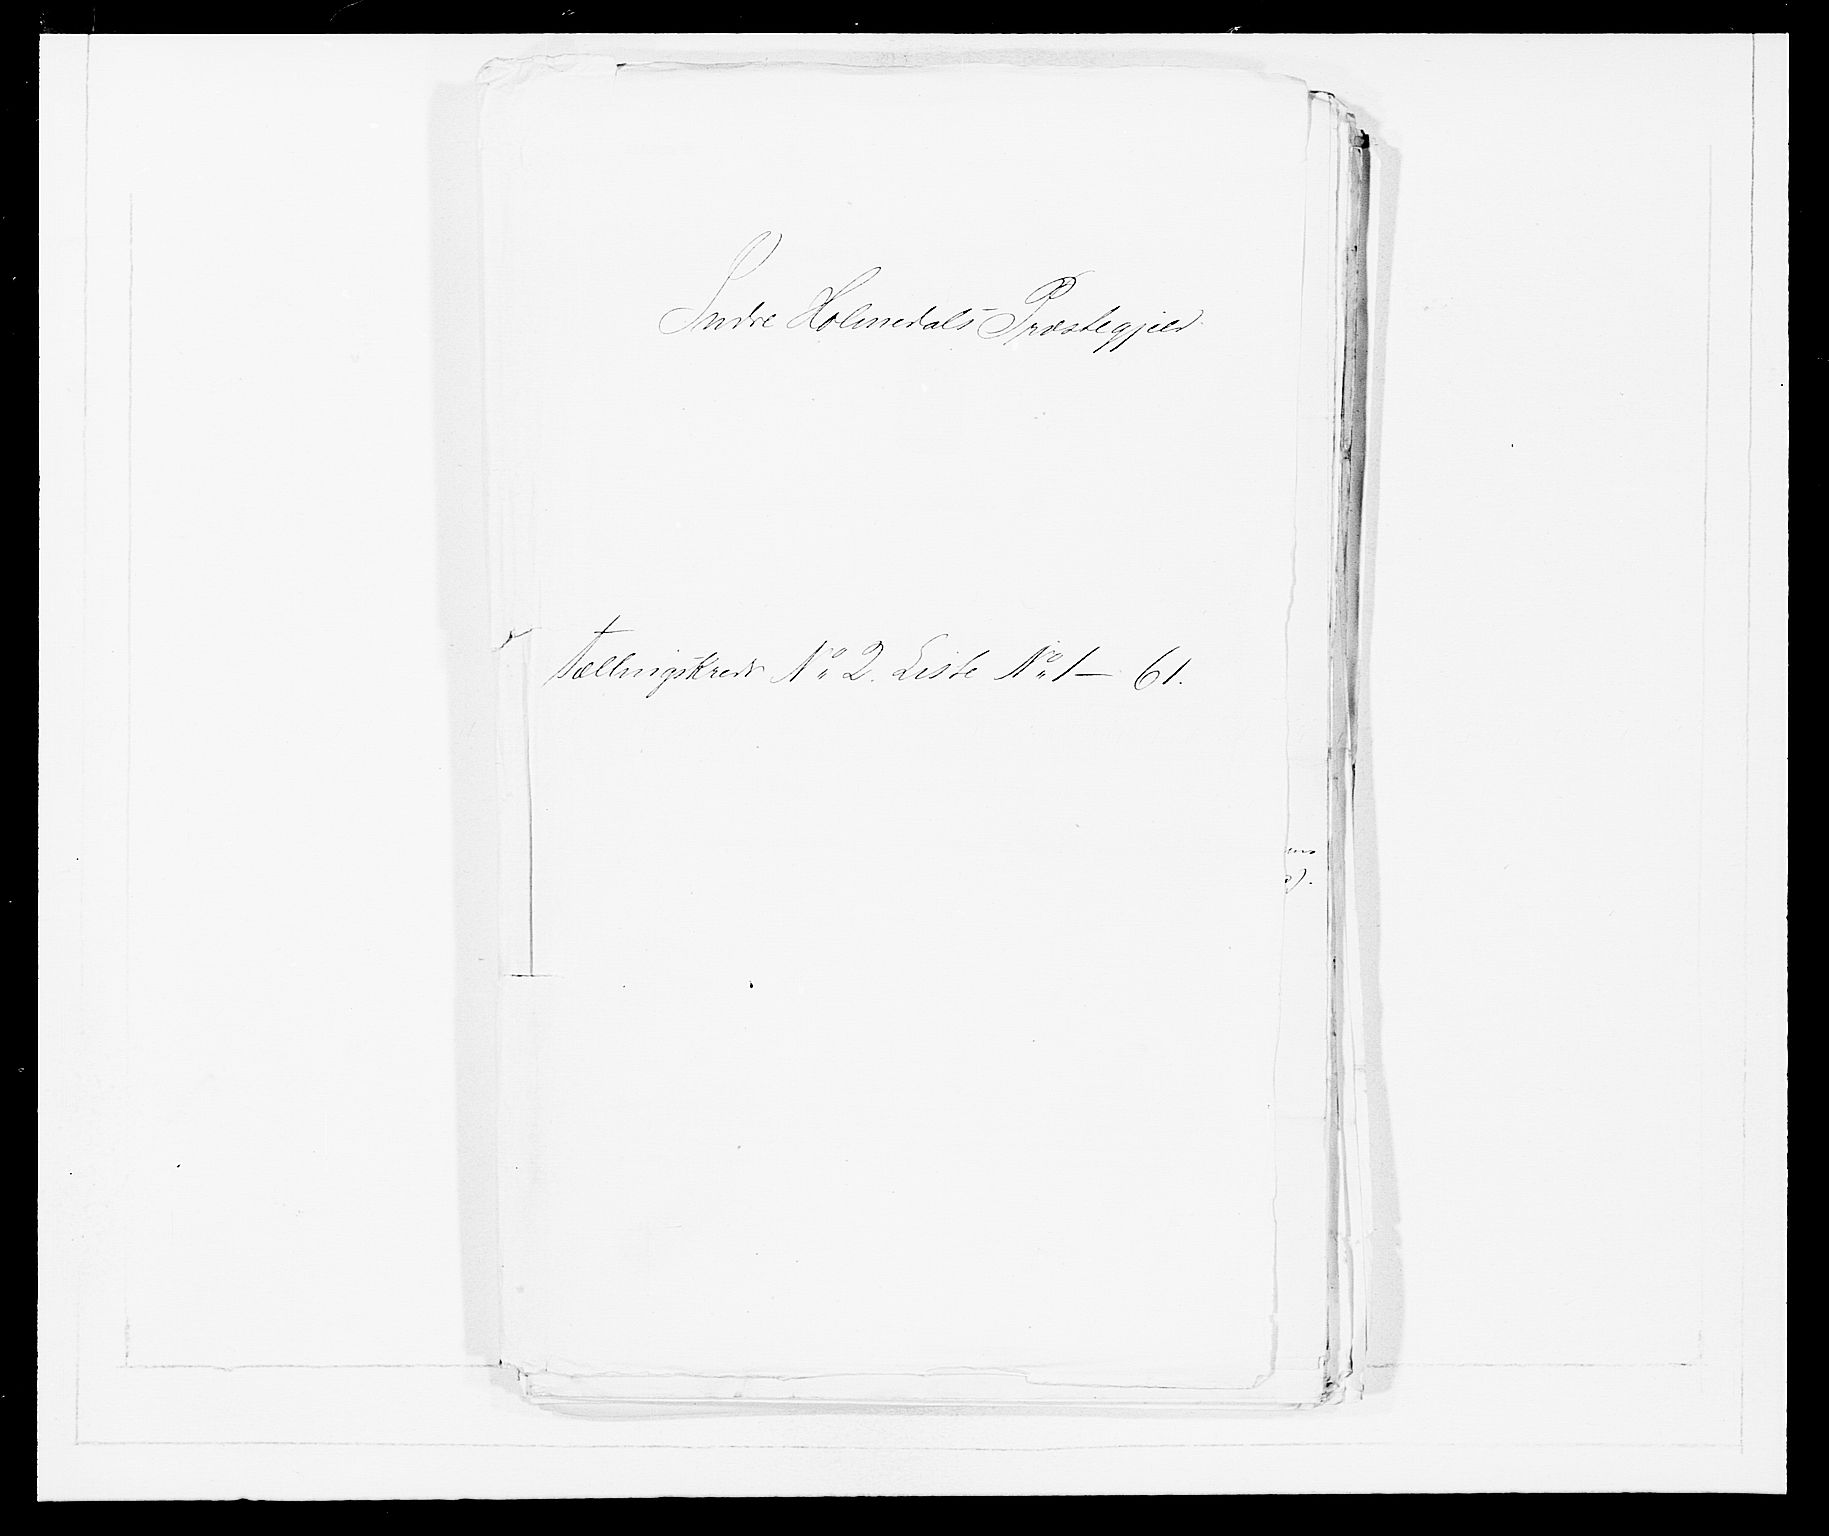 Indre Holmedals Præstegjeld
Tællingskreds No 2. Liste No 1 — 61.